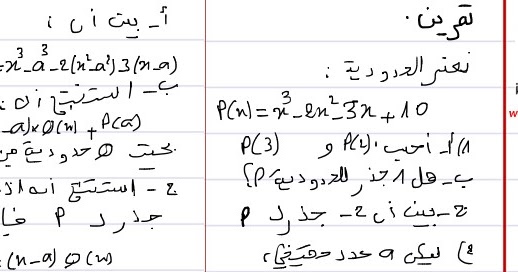 تمرين .
نعتبر الحدودية :
P(x) = x³ - 2x² - 3x + 10
1) أ- أحسب P(1) و P(3)
ب- هل 1 جذر للحدودية P؟
ج- بين أن 2- جذر ل P
2) ليكن a عدد حقيقي،
أ- بين أن :
=x³-a³-2(x²-a²)-3(x-a)
ب- استنتج أن :
-a)×Q(x) + P(a)
بحيث Q حدودية من
ج- استنتج أنه إذا
جذر ل P فإ
=(x-a) Q(x)